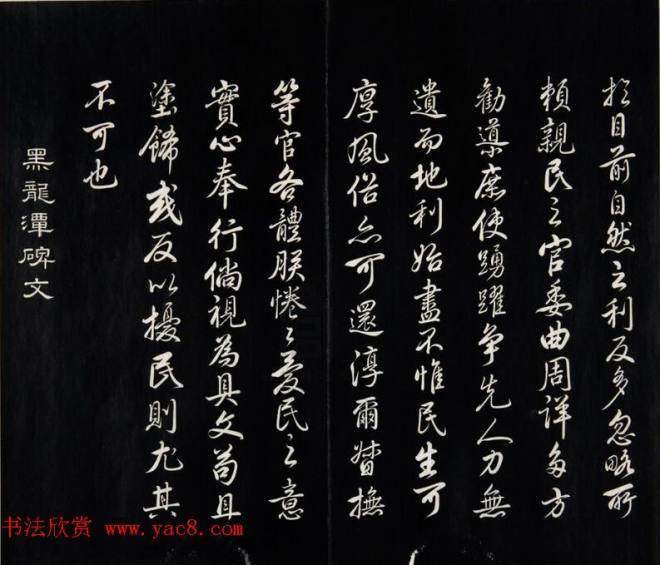 於目前自然之利反多忽略所
賴親民之官委曲周詳多方
勸導庶使踴躍爭先人力無
遺而地利始盡不惟民生可
厚風俗亦可還淳爾督撫
等官各體朕惓〻愛民之意
實心奉行倘視為具文苟且
塗飾或反以擾民則尤其
不可也
黑龍潭碑文
书法欣赏 www.yac8.com